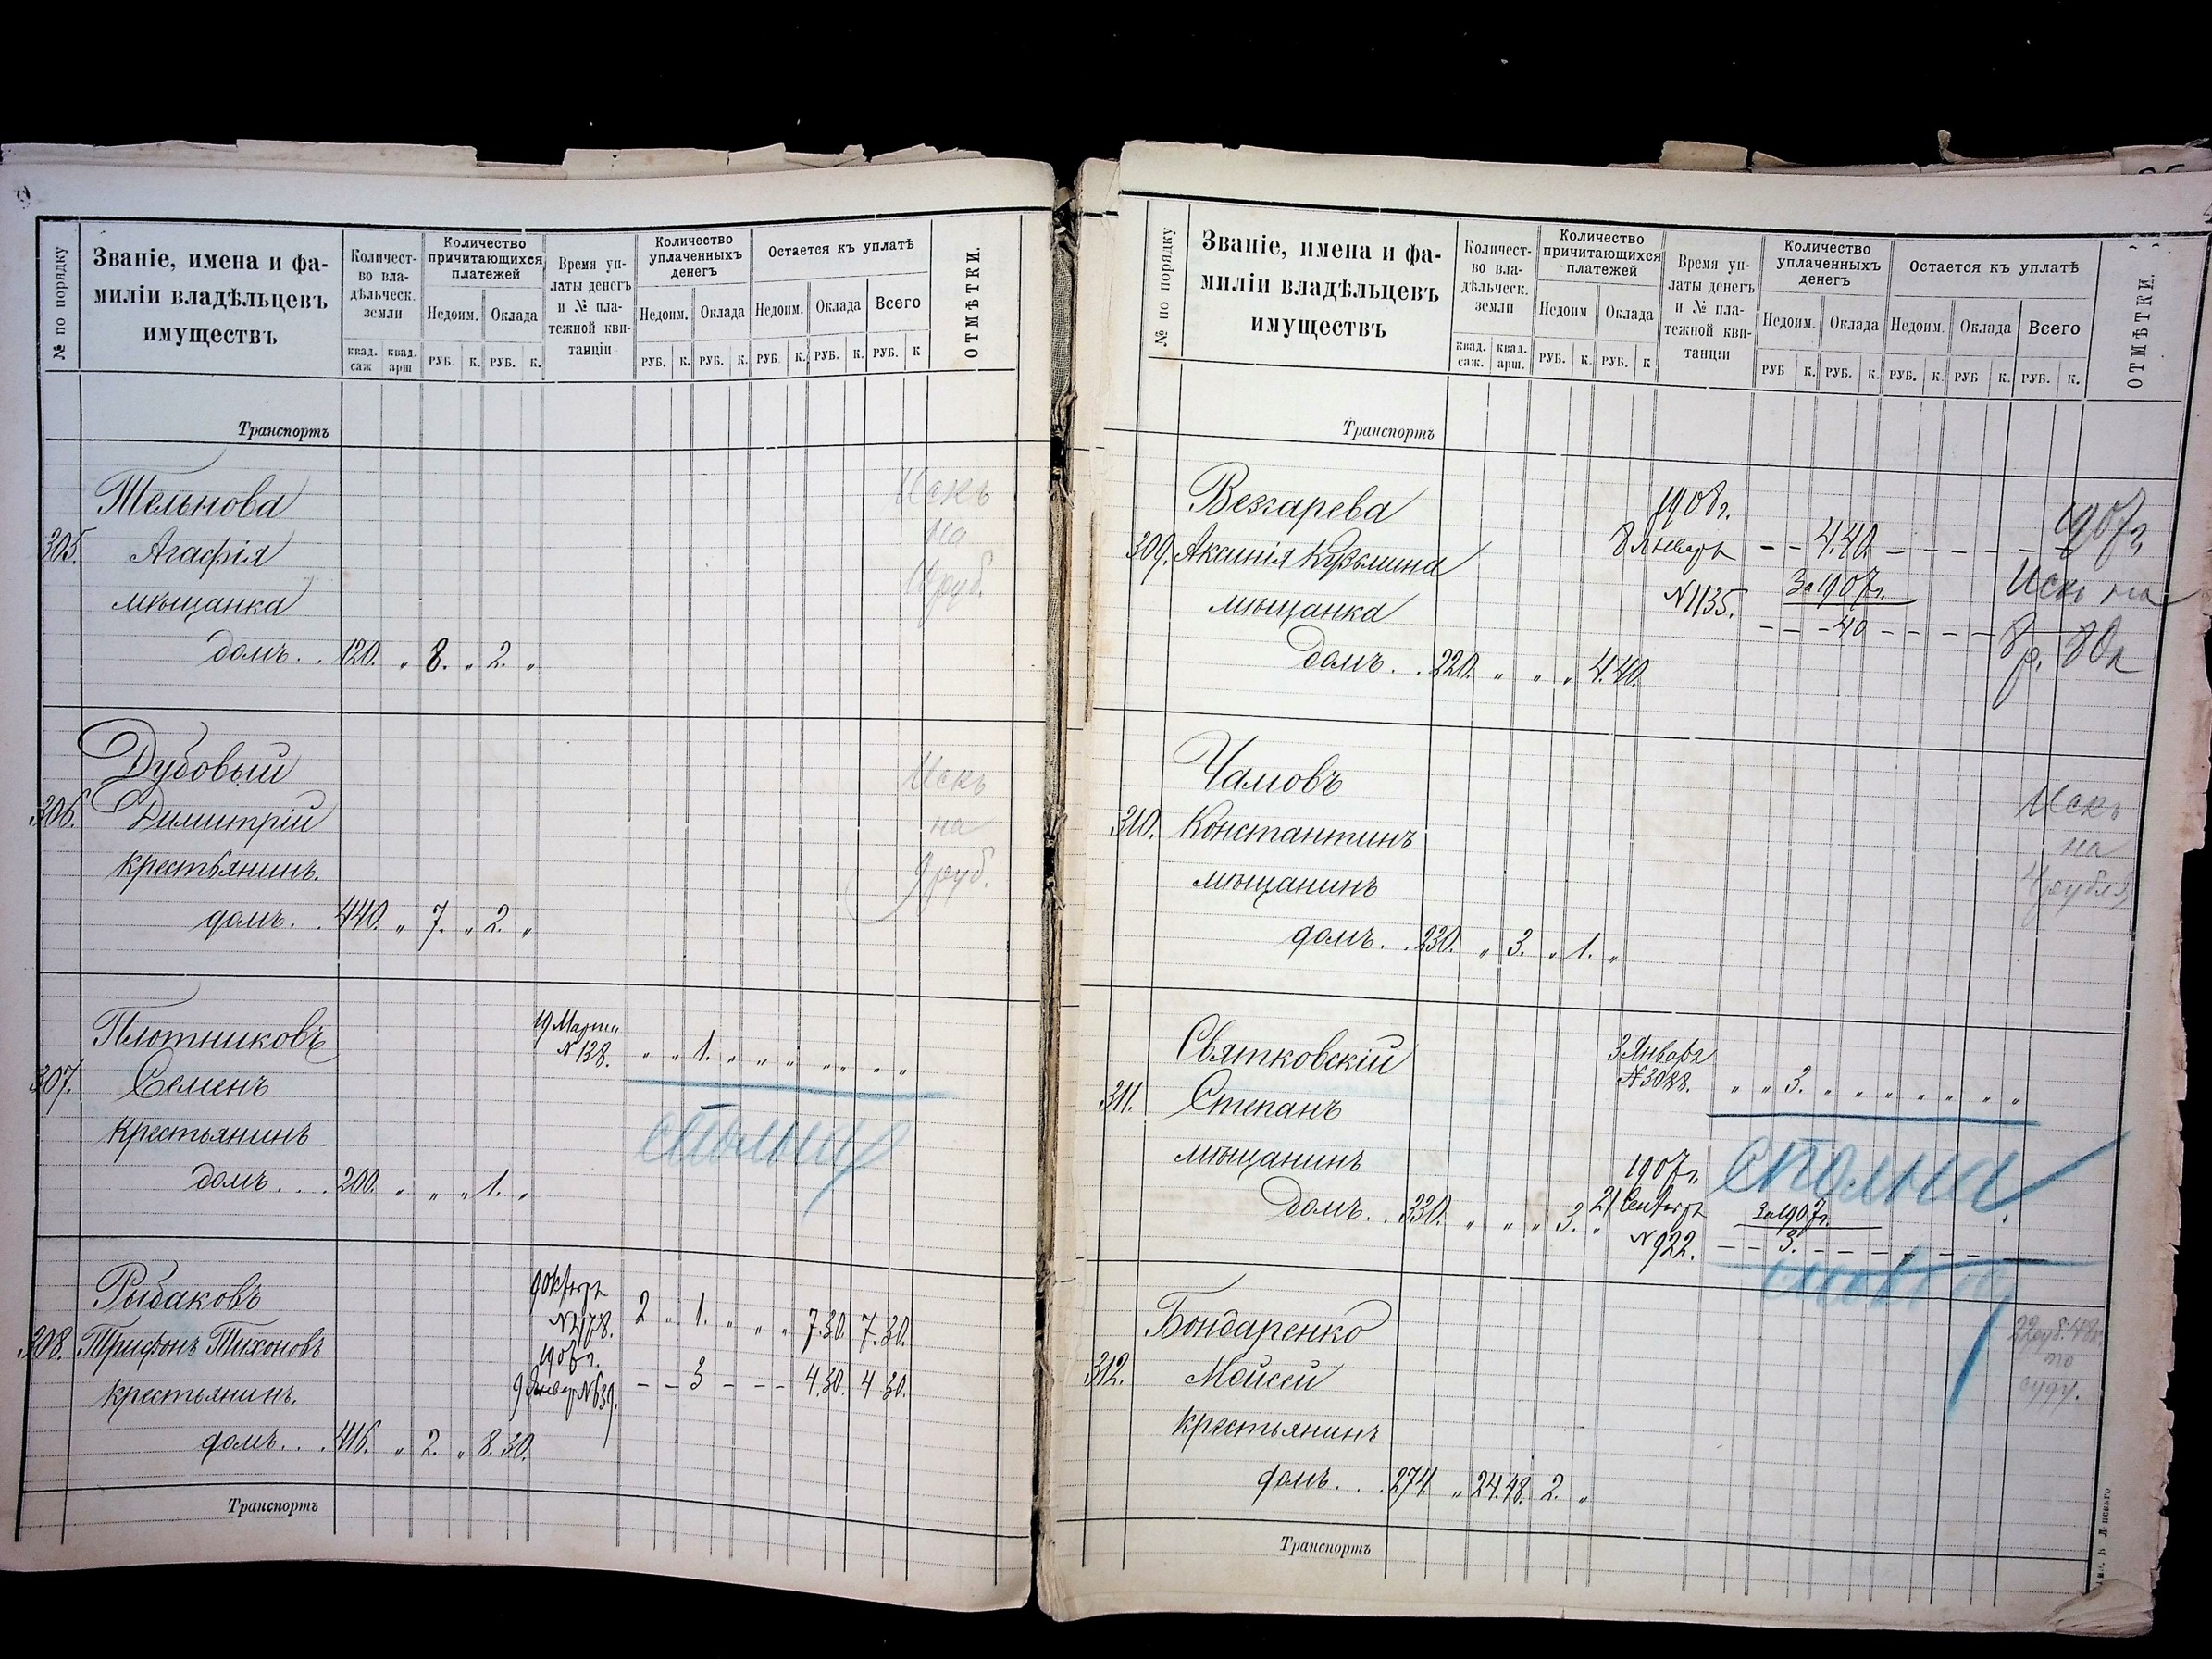 № по порядку
Званіе, имена и фа-
миліи владѣльцевъ
имуществъ
Количест-
во вла-
дѣльческ.
земли
квад. саж
квад. арш
Количество
причитающихся
платежей
Недоим. Оклада
РУБ. К. РУБ. К.
Время уп-
латы денегъ
и № пла-
тежной кви-
танціи
Количество
уплаченныхъ
денегъ
Недоим. Оклада
РУБ. К. РУБ. К.
Остается къ уплатѣ
Недоим. Оклада Всего
РУБ. К. РУБ. К. РУБ. К
ОТМѢТКИ.
Транспортъ
Тельнова
305. Агафія
мѣщанка
домъ. . 120. „ 8. „ 2. „
Искъ
на
руб.
Дубовый
306. Димитрій
крестьянинъ.
домъ. . 440. „ 7. „ 2. „
Искъ
на
9 руб.
Плотниковъ
307. Семенъ
крестьянинъ
домъ. . . 200. „ „ „ 1. „
19 Марта
№ 128. „ „ 1. „ „ „ „ „ „ „
сполна
Рыбаковъ
308. Трифонъ Тихоновъ
крестьянинъ.
домъ. . . 416. „ 2. „ 8. 30.
9 Октября
№ 2178. 2 „ 1. „ „ „ 7. 30. 7. 30.
1907г.
9 Январ № 639. - - 3 - - - 4. 30. 4 30.
Транспортъ
№ по порядку
Званіе, имена и фа-
миліи владѣльцевъ
имуществъ
Количест-
во вла-
дѣльческ.
земли
квад. саж.
квад. арш.
Количество
причитающихся
платежей
Недоим Оклада
РУБ. К. РУБ. К
Время уп-
латы денегъ
и № пла-
тежной кви-
танціи
Количество
уплаченныхъ
денегъ
Недоим. Оклада
РУБ К. РУБ. К.
Остается къ уплатѣ
Недоим. Оклада Всего
РУБ. К. РУБ К. РУБ. К.
ОТМѢТКИ.
Транспортъ
309. Аксинія Кузьмина
мѣщанка
домъ. . 220. „ „ „ 4. 40.
1908г.
8 Января - - 4.40. - - - - - -
№ 1135. За 1907г.
- - - 40 - - - -
1907г,
Искъ на
8р. 80к
Чамовъ
310. Константинъ
мѣщанинъ
домъ. . 230. „ 3. „ 1. „
Искъ
на
4 рубля
Святковскій
311. Степанъ
мѣщанинъ
домъ. . 330. „ „ „ 3. „
3 Января
№ 3028. „ „ 3. „ „ „ „ „ „ „
сполна
1907г.
21 Сентяб
№ 922. За 1907г.
- - 3. - - - - - -
сполна
Бондаренко
312. Мойсей
крестьянинъ
домъ. . . 274. „ 24.48. 2. „
22руб. 48к.
по
суду.
Транспортъ